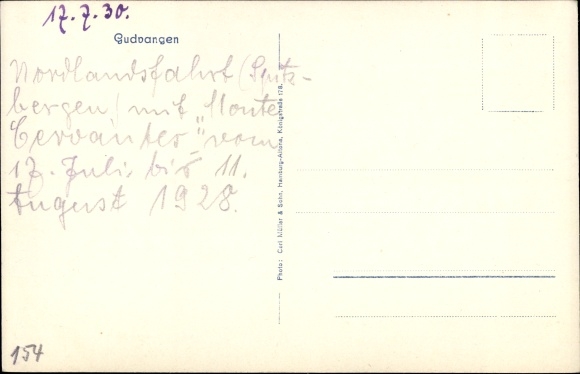 17.7.30.
Gudvangen
Nordlandsfahrt (Spitz-
bergen) mit "Monte
Cervantes" vom
17. Juli bis 11.
August 1928.
154
Photo: Carl Müller & Sohn, Hamburg-Altona, Königstraße 178.